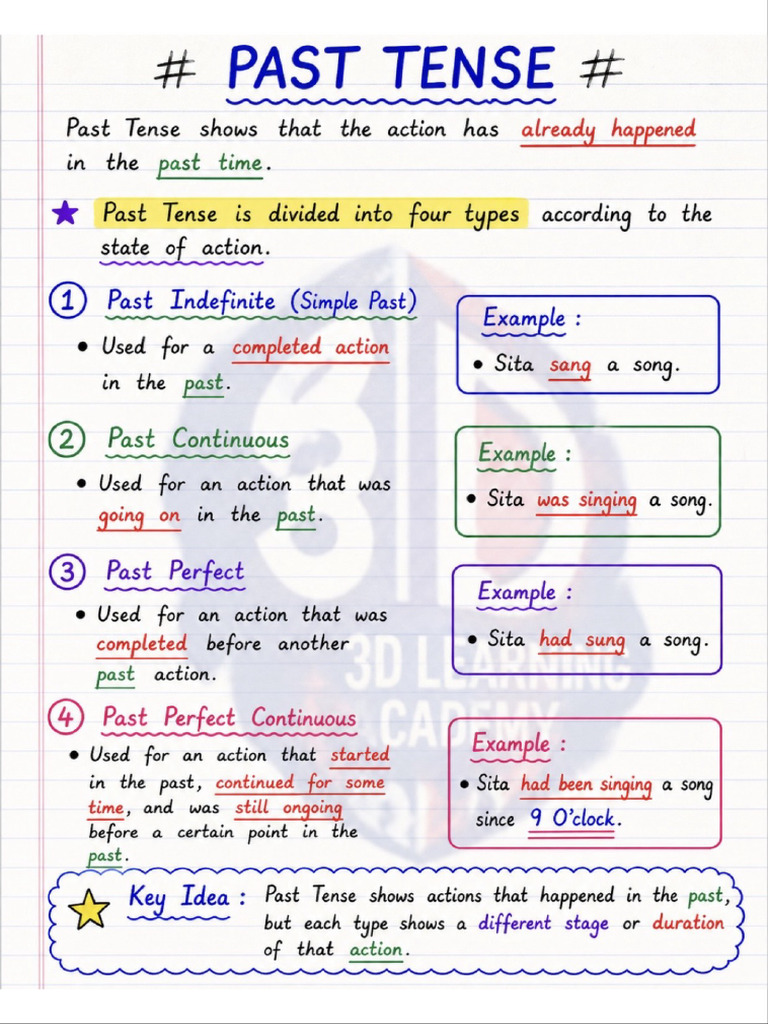 # PAST TENSE #
Past Tense shows that the action has already happened
in the past time.
★ Past Tense is divided into four types according to the
state of action.
1 Past Indefinite (Simple Past)
• Used for a completed action
in the past.
Example :
• Sita sang a song.
2 Past Continuous
• Used for an action that was
going on in the past.
Example :
• Sita was singing a song.
3 Past Perfect
• Used for an action that was
completed before another
past action.
Example :
• Sita had sung a song.
4 Past Perfect Continuous
• Used for an action that started
in the past, continued for some
time, and was still ongoing
before a certain point in the
past.
Example :
• Sita had been singing a song
since 9 O'clock.
Key Idea : Past Tense shows actions that happened in the past,
but each type shows a different stage or duration
of that action.
3D
3D LEARNING
ACADEMY